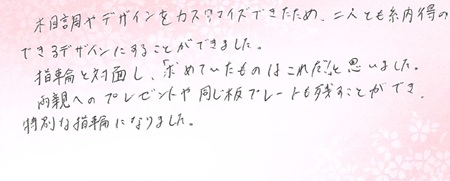 木目調やデザインをカスタマイズできたため、二人とも納得の
できるデザインにすることができました。
指輪と対面し、「求めていたものはこれだ!」と思いました。
両親へのプレゼントや同じ板プレートも残すことができ、
特別な指輪になりました。